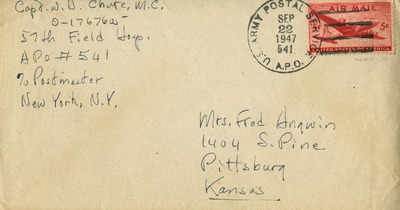 Capt. W. D. Chute, M.C.
O-1767605
57th Field Hosp.
APO # 541
℅ Postmaster
New York, N.Y.
U.S. ARMY POSTAL SERVICE
SEP
22
1947
541
A.P.O.
AIR MAIL
5¢
UNITED STATES OF AMERICA
Mrs. Fred Angwin
1404 S. Pine
Pittsburg
Kansas